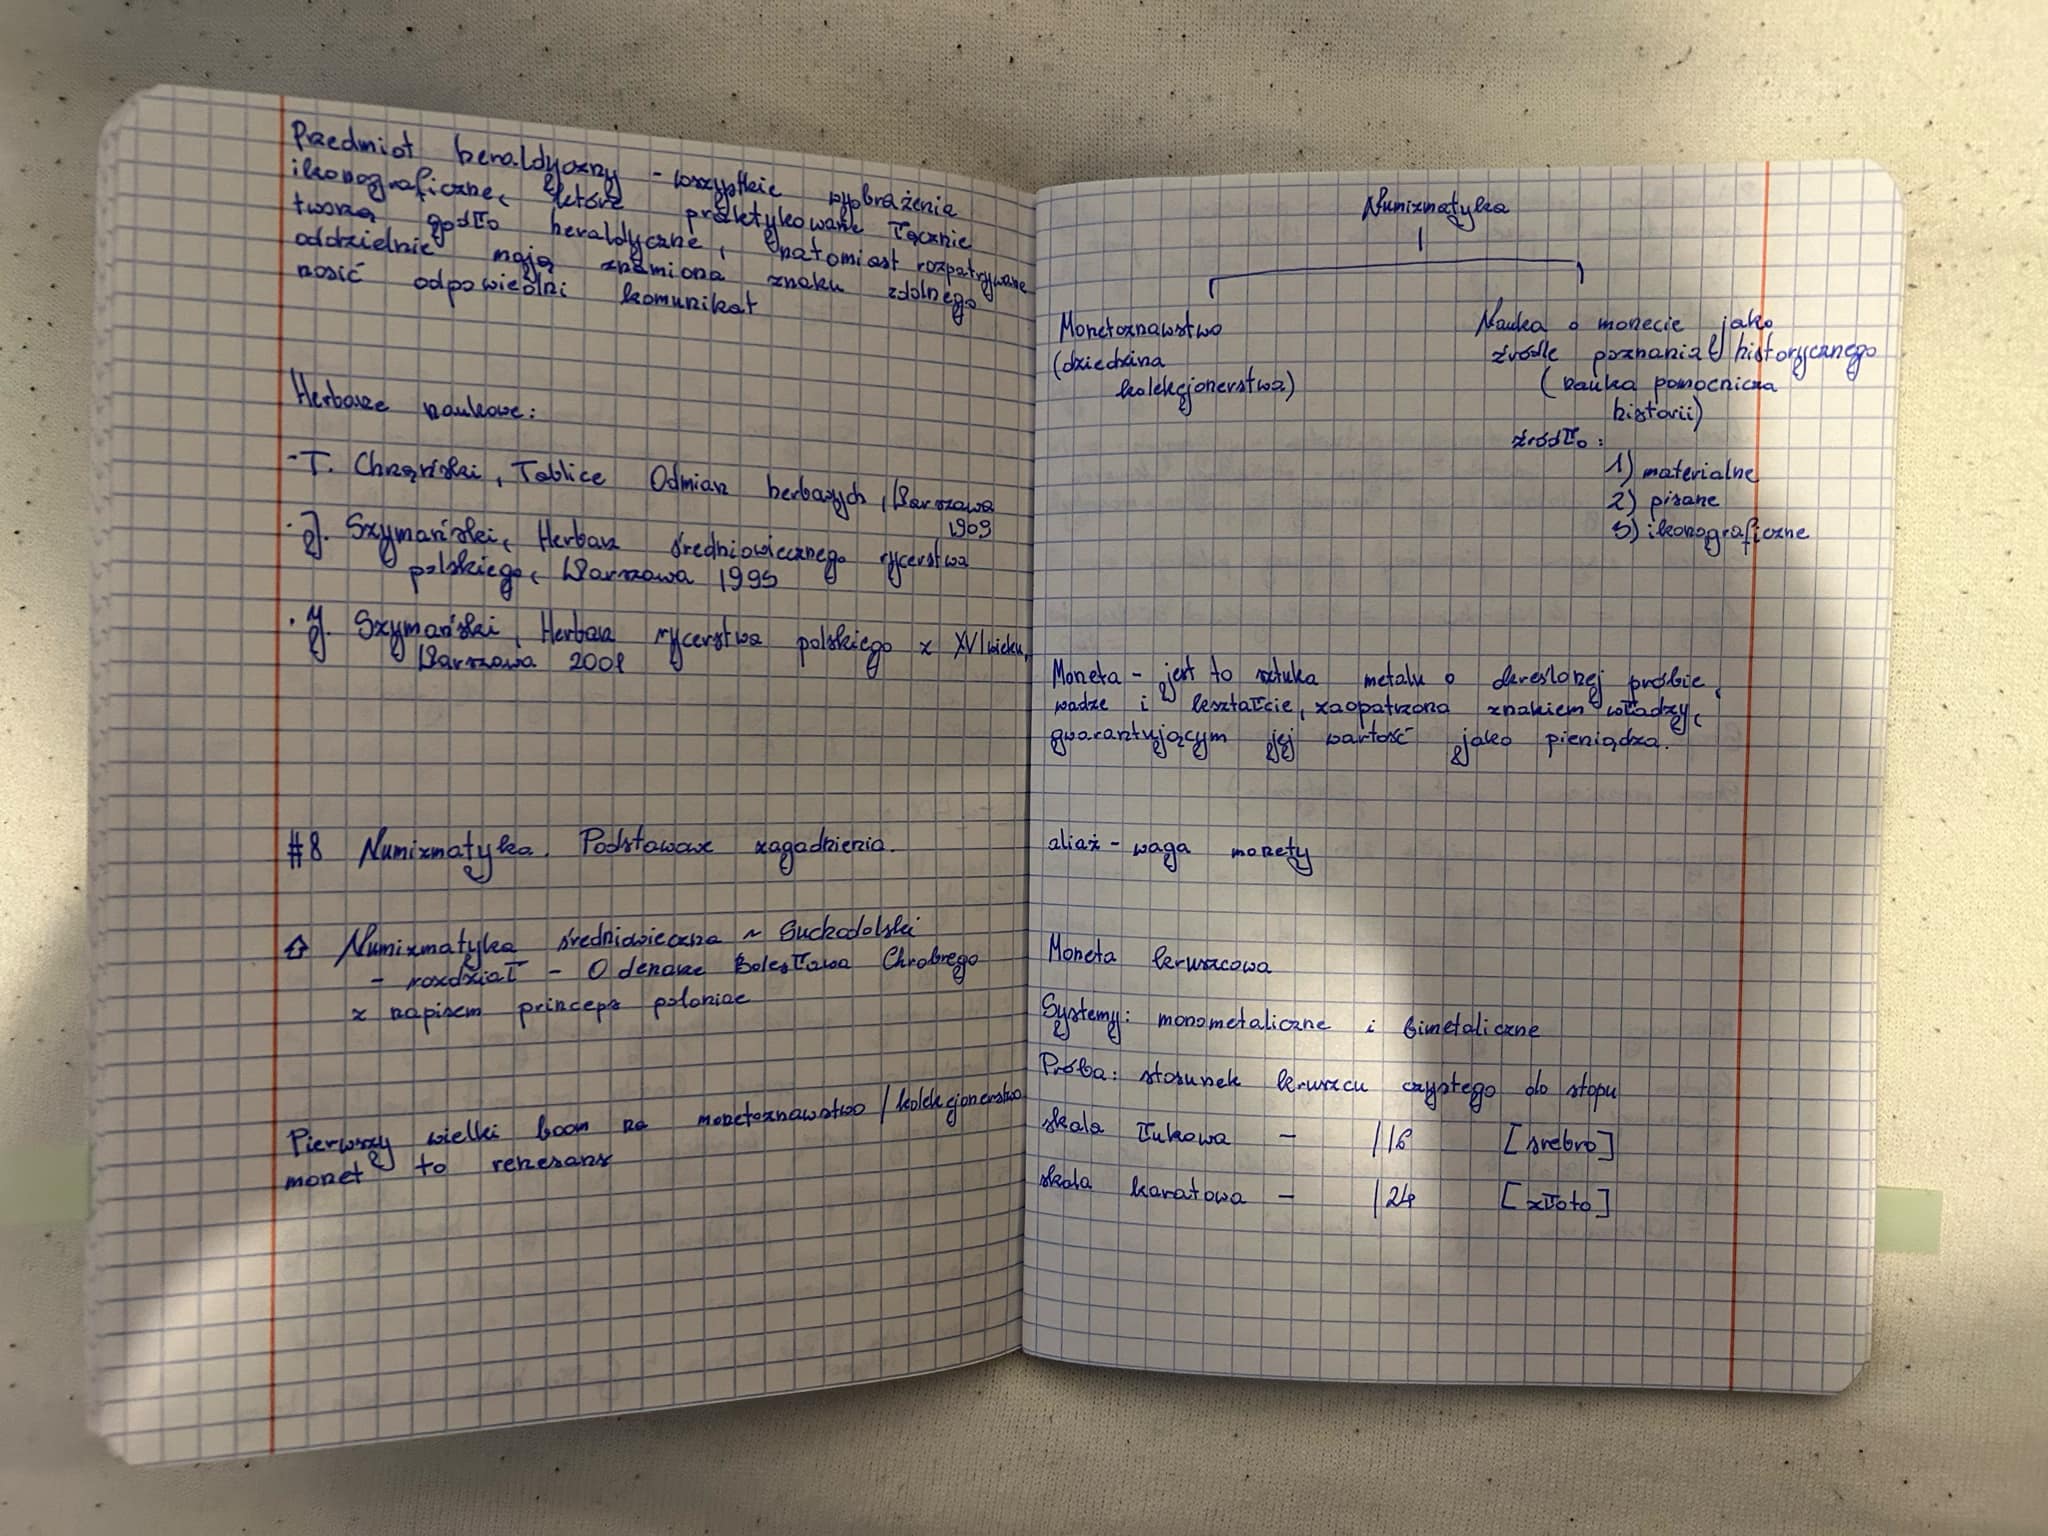 Przedmiot heraldyczny - wszystkie wyobrażenia
ikonograficzne, które praktykowane łącznie
tworzą godło heraldyczne, natomiast rozpatrywane
oddzielnie mają znamiona znaku zdolnego
nosić odpowiedni komunikat
Herbarze naukowe:
- T. Chrząński, Tablice Odmian herbowych, Warszawa
1909
· J. Szymański, Herbarz średniowiecznego rycerstwa
polskiego, Warszawa 1993
· J. Szymański, Herbarz rycerstwa polskiego z XVI wieku,
Warszawa 2001
#8 Numizmatyka. Podstawowe zagadnienia.
⇧ Numizmatyka średniowieczna ~ Suchodolski
- rozdział - O denarze Bolesława Chrobrego
z napisem princeps poloniae
Pierwszy wielki boom na monetoznawstwo / kolekcjonerstwo
monet to renesans
Numizmatyka
Monetoznawstwo
(dziedzina
kolekcjonerstwa)
Nauka o monecie jako
źródle poznania historycznego
(nauka pomocnicza
historii)
źródło:
1) materialne
2) pisane
3) ikonograficzne
Moneta - jest to sztuka metalu o określonej próbie,
wadze i kształcie, zaopatrzona znakiem władzy,
gwarantującym jej wartość jako pieniądza.
aliaż - waga monety
Moneta kruszcowa
Systemy: monometaliczne i bimetaliczne
Próba: stosunek kruszcu czystego do stopu
skala łukowa - /16 [srebro]
skala karatowa - /24 [złoto]